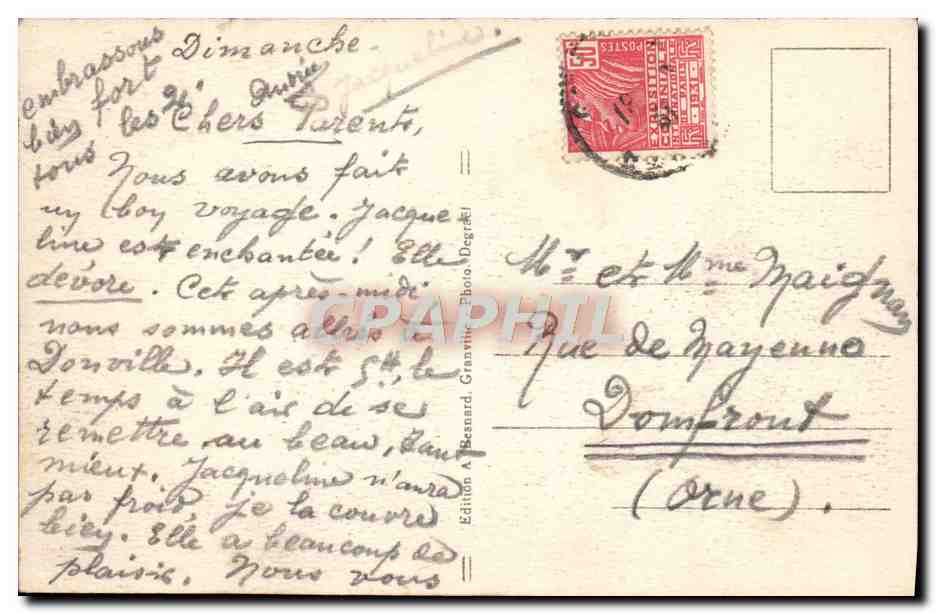 Dimanche.
Chers Parents,
Nous avons fait
un bon voyage. Jacque-
line est enchantée! Elle
dévore. Cet après midi
nous sommes allés à
Donville. Il est 5h, le
temps à l'air de se
remettre au beau, tant
mieux. Jacqueline n'aura
pas froid, je la couvre
bien. Elle a beaucoup de
plaisir. Nous vous
embrassons
bien fort
tous les
Jacqueline.
Edition A. Besnard, Granville - Photo. Degrael
POSTES
50c
EXPOSITION
COLONIALE
INTERNATIONALE
DE PARIS
1931
Mr et Mme Maignan
Rue de Mayenne
Domfront
(Orne).
CPAPHIL